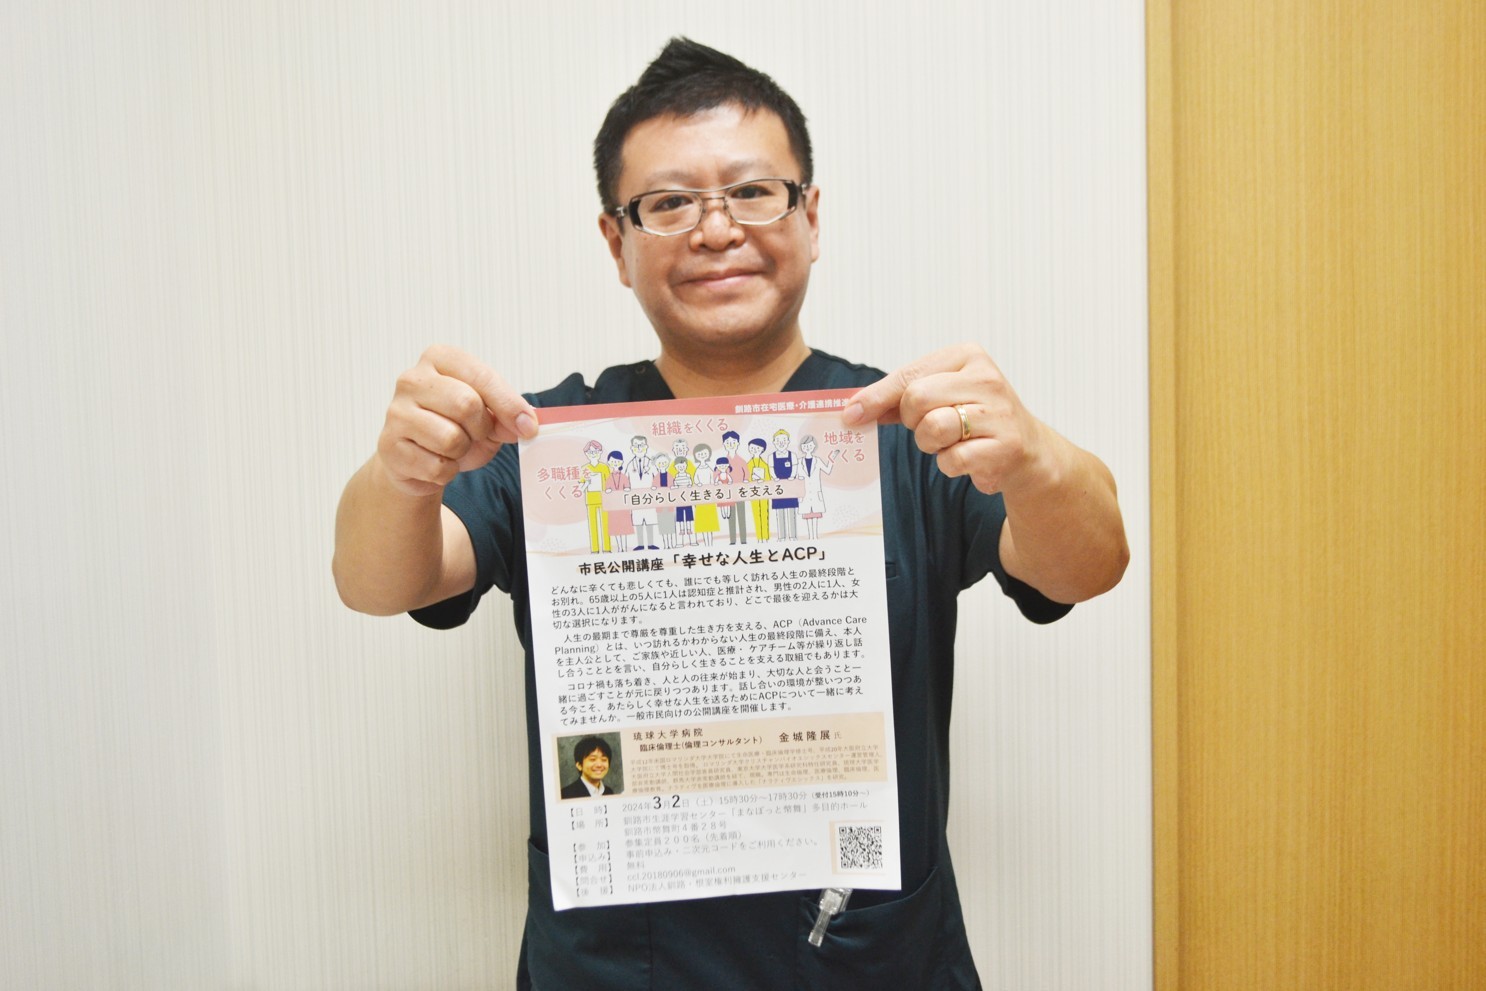 釧路市在宅医療・介護連携推進
組織をくくる
地域を
くくる
多職種を
くくる
「自分らしく生きる」を支える
市民公開講座「幸せな人生とACP」
どんなに辛くても悲しくても、誰にでも等しく訪れる人生の最終段階と
お別れ。65歳以上の5人に1人は認知症と推計され、男性の2人に1人、女
性の3人に1人ががんになると言われており、どこで最後を迎えるかは大
切な選択になります。
人生の最期まで尊厳を尊重した生き方を支える、ACP（Advance Care
Planning）とは、いつ訪れるかわからない人生の最終段階に備え、本人
を主人公として、ご家族や近しい人、医療・ケアチーム等が繰り返し話
し合うこととを言い、自分らしく生きることを支える取組でもあります。
コロナ禍も落ち着き、人と人の往来が始まり、大切な人と会うこと一
緒に過ごすことが元に戻りつつあります。話し合いの環境が整いつつあ
る今こそ、あたらしく幸せな人生を送るためにACPについて一緒に考え
てみませんか。一般市民向けの公開講座を開催します。
琉球大学病院
臨床倫理士(倫理コンサルタント) 金城隆展 氏
【日 時】 2024年3月2日（土）15時30分～17時30分（受付15時10分～）
【場 所】 釧路市生涯学習センター「まなぼっと幣舞」多目的ホール
釧路市幣舞町4番28号
【参 加】 参集定員200名（先着順）
【申込み】 事前申込み・二次元コードをご利用ください。
【費 用】 無料
【問合せ】 ccl.20180906@gmail.com
【後 援】 NPO法人釧路・根室権利擁護支援センター